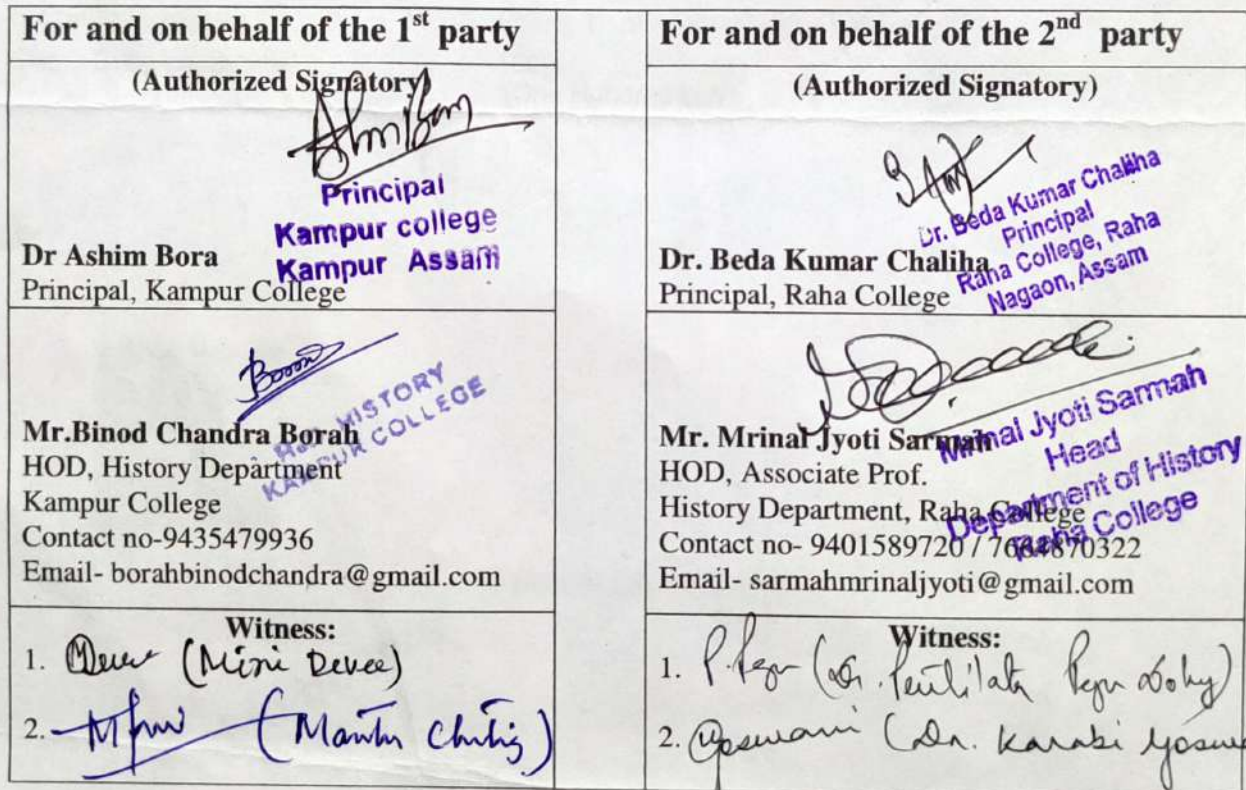 For and on behalf of the 1st party
(Authorized Signatory)
Principal
Kampur college
Kampur Assam
Dr Ashim Bora
Principal, Kampur College
HISTORY
KAMPUR COLLEGE
Mr.Binod Chandra Borah
HOD, History Department
Kampur College
Contact no-9435479936
Email- borahbinodchandra@gmail.com
Witness:
1. (Mini Devee)
2. (Mantu
For and on behalf of the 2nd party
(Authorized Signatory)
Dr. Beda Kumar Chaliha
Principal
Raha College, Raha
Nagaon, Assam
Dr. Beda Kumar Chaliha
Principal, Raha College
Mrinal Jyoti Sarmah
Head
Department of History
Raha College
Mr. Mrinal Jyoti Sarmah
HOD, Associate Prof.
History Department, Raha College
Contact no- 9401589720 /
Email- sarmahmrinaljyoti@gmail.com
Witness:
1. (Dr.
2. Goswami (Dr. Karabi